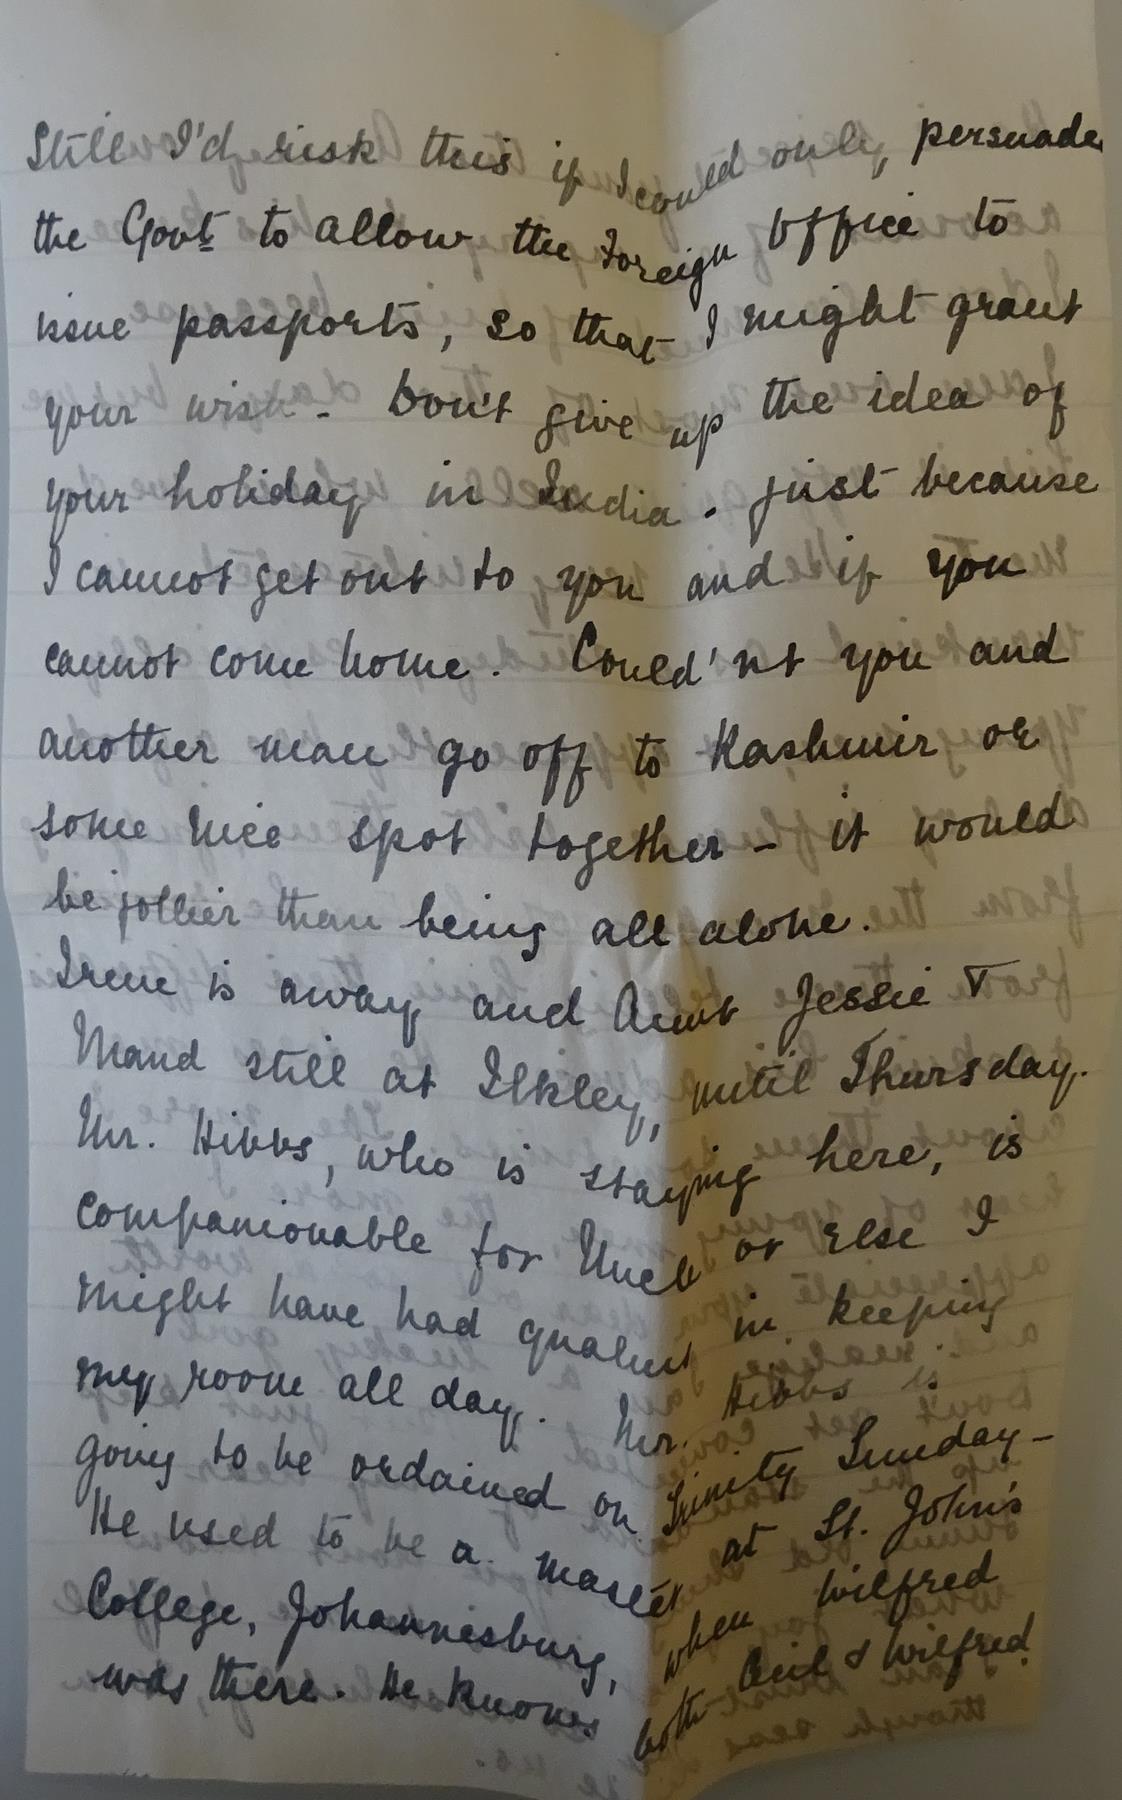 Still I'd risk this if I could only persuade
the Govt to allow the Foreign Office to
issue passports, so that I might grant
your wish - Don't give up the idea of
your holiday in India. just because
I cannot get out to you and if you
cannot come home. Could'nt you and
another man go off to Kashmir or
some nice spot together - it would
be jollier than being all alone.
Irene is away and Aunt Jessie &
Maud still at Ilkley, until Thursday.
Mr. Hibbs, who is staying here, is
companionable for Uncle or else I
might have had qualms in keeping
my room all day. Mr. Hibbs is
going to be ordained on Trinity Sunday -
He used to be a master at St. John's
College, Johannesburg, when Wilfred
was there. He knows both Cecil & Wilfred